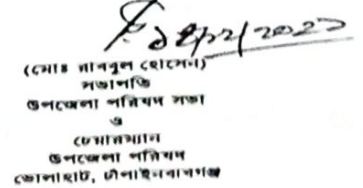 (মোঃ রাব্বুল হোসেন)
সভাপতি
উপজেলা পরিষদ সভা
ও
চেয়ারম্যান
উপজেলা পরিষদ
ভোলাহাট, চাঁপাইনবাবগঞ্জ